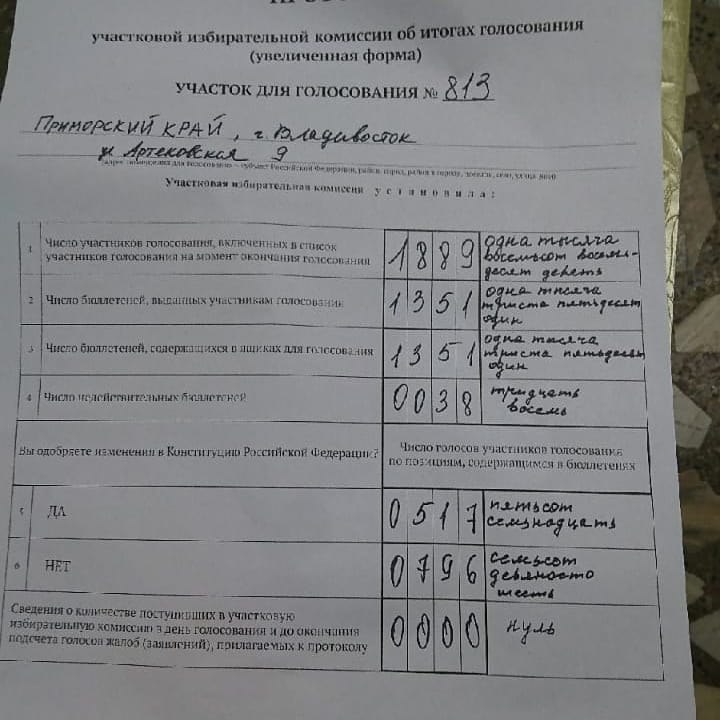 участковой избирательной комиссии об итогах голосования
(увеличенная форма)
УЧАСТОК ДЛЯ ГОЛОСОВАНИЯ № 813
Приморский край, г. Владивосток
ул Артековская 9
Участковая избирательная комиссия установила:
1 Число участников голосования, включенных в список
участников голосования на момент окончания голосования
1889
одна тысяча
восемьсот восемь-
десят девять
2 Число бюллетеней, выданных участникам голосования
1351
одна тысяча
триста пятьдесят
один
3 Число бюллетеней, содержащихся в ящиках для голосования
1351
одна тысяча
триста пятьдесят
один
4 Число недействительных бюллетеней
0038
тридцать
восемь
Вы одобряете изменения в Конституцию Российской Федерации?
Число голосов участников голосования
по позициям, содержащимся в бюллетенях
5 ДА
0517
пятьсот
семнадцать
6 НЕТ
0796
семьсот
девяносто
шесть
Сведения о количестве поступивших в участковую
избирательную комиссию в день голосования и до окончания
подсчета голосов жалоб (заявлений), прилагаемых к протоколу
0000
нуль